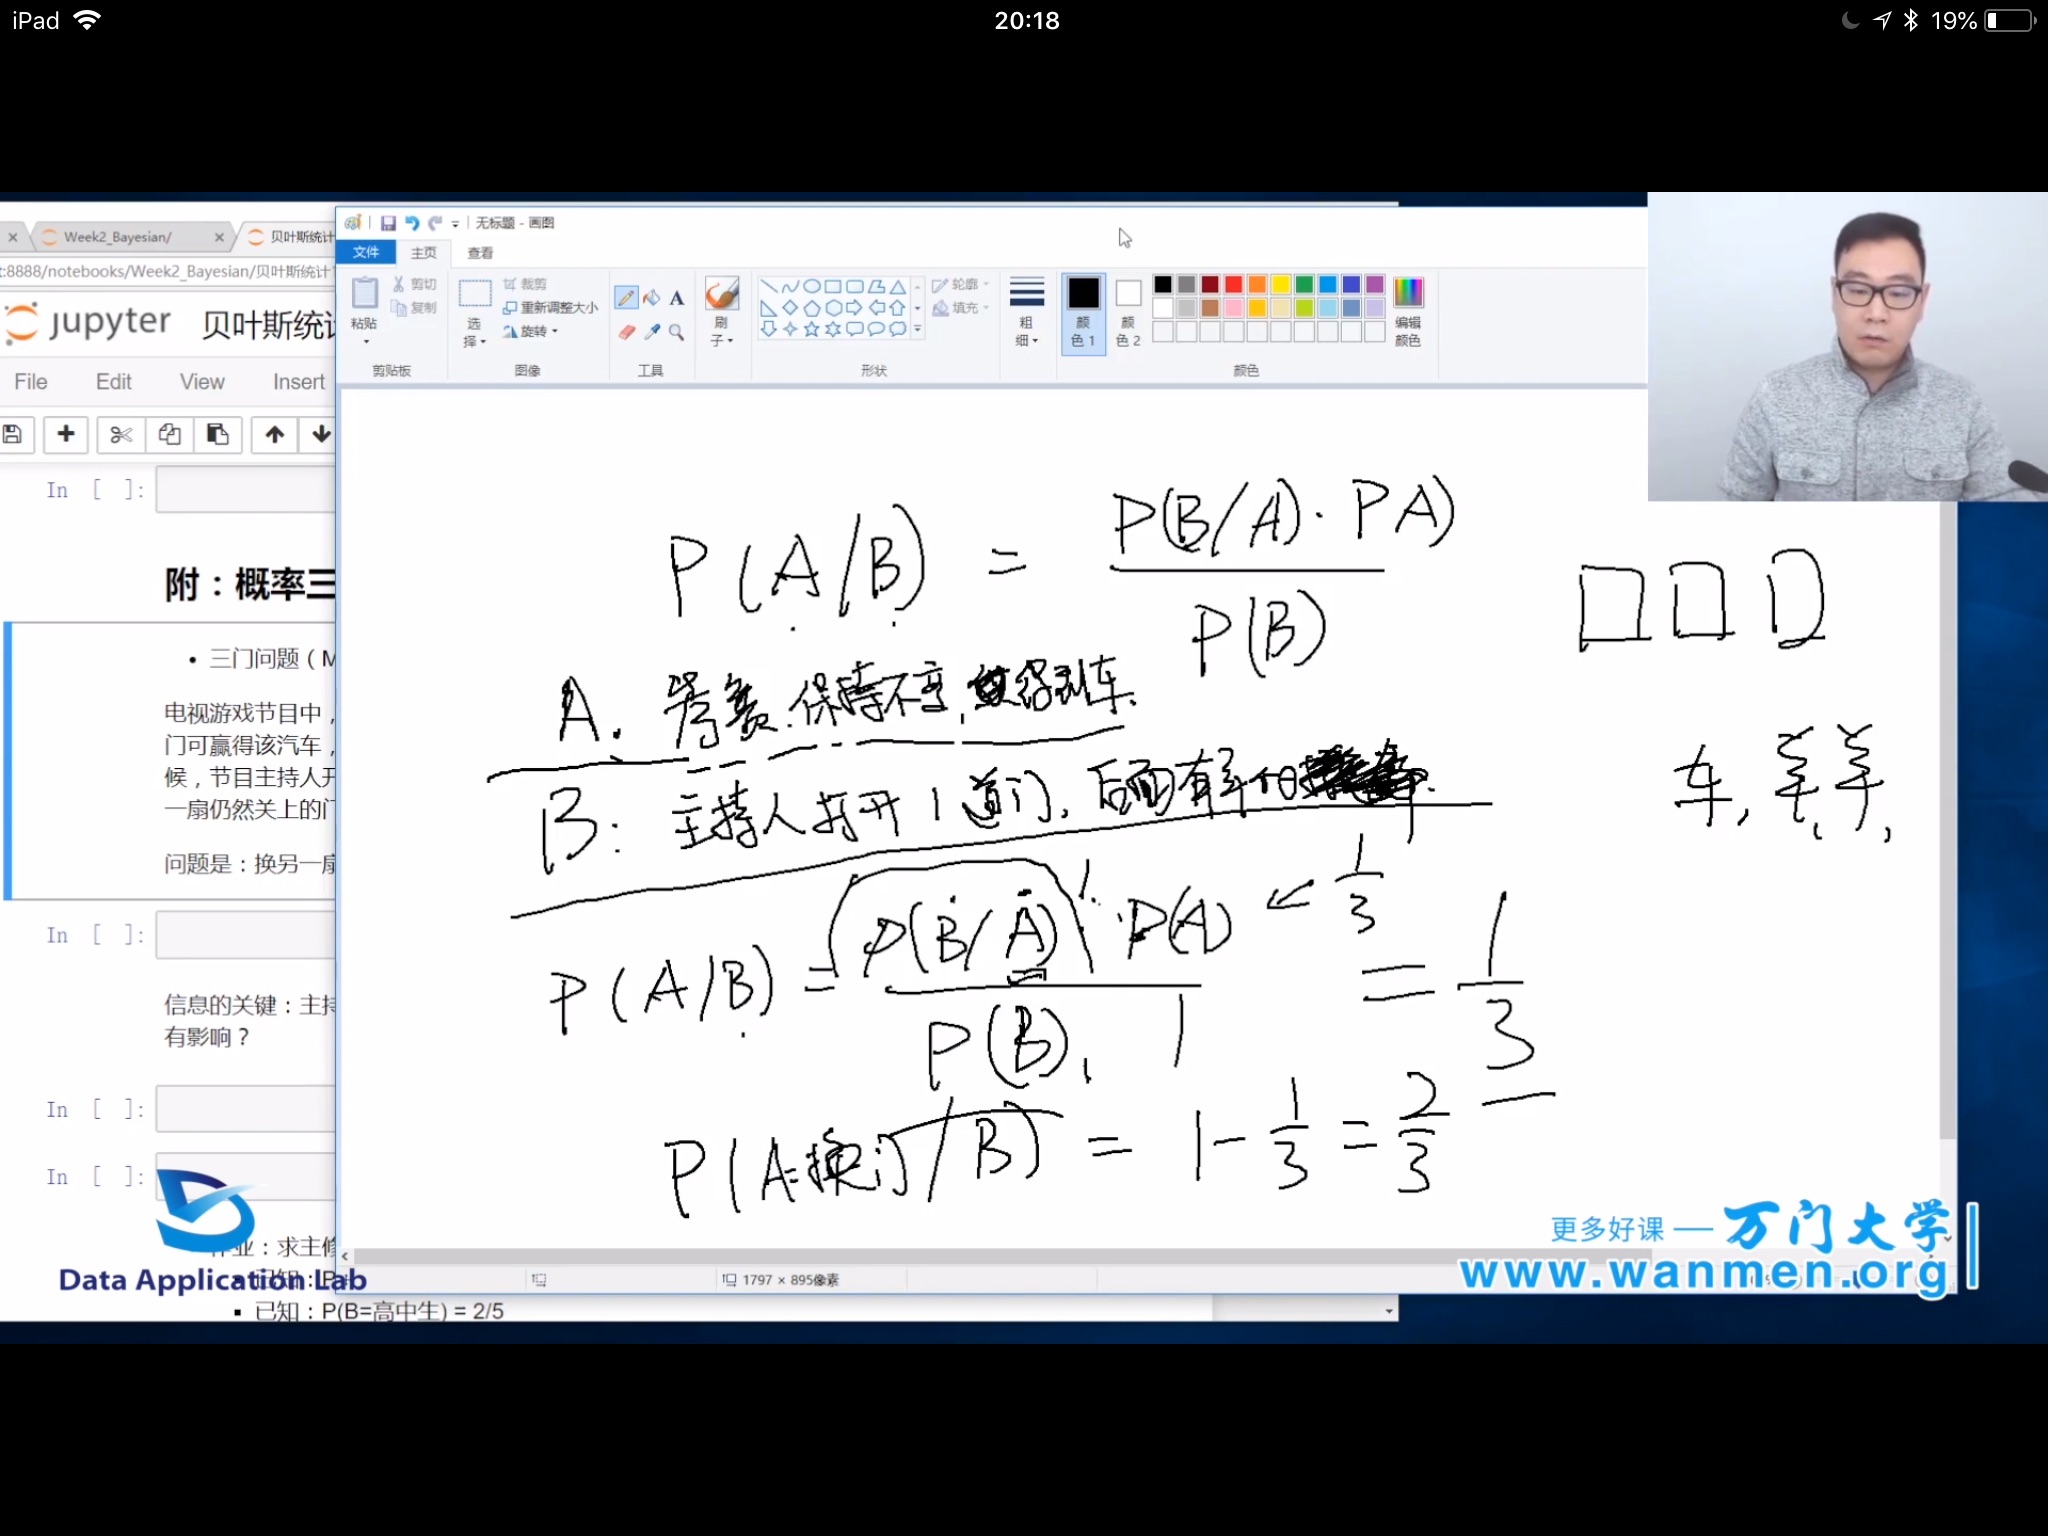 iPad 20:18 19%
Week2_Bayesian/ 贝叶斯统计
t:8888/notebooks/Week2_Bayesian/贝叶斯统计
jupyter 贝叶斯统计
File Edit View Insert
In [ ]:
附：概率三
• 三门问题（M
电视游戏节目中，
门可赢得该汽车，
候，节目主持人开
一扇仍然关上的门
问题是：换另一扇
In [ ]:
信息的关键：主持
有影响？
In [ ]:
In [ ]:
作业：求主修
已知：P
▪ 已知：P(B=高中生) = 2/5
Data Application Lab
无标题 - 画图
文件 主页 查看
粘贴 剪切 复制 剪贴板
选择 裁剪 重新调整大小 旋转 图像
A 工具
刷子
轮廓 填充 形状
粗细
颜色 1 颜色 2 编辑颜色 颜色
P(A/B) = P(B/A)·PA) / P(B)
A. 保持不变, 得到车.
B: 主持人打开1道门, 后面有羊
车, 羊, 羊,
P(A/B) = P(B/A) · P(A) ← 1/3
P(B). 1
= 1/3
P(A=换门/B) = 1 - 1/3 = 2/3
1797 × 895像素
更多好课 — 万门大学
www.wanmen.org